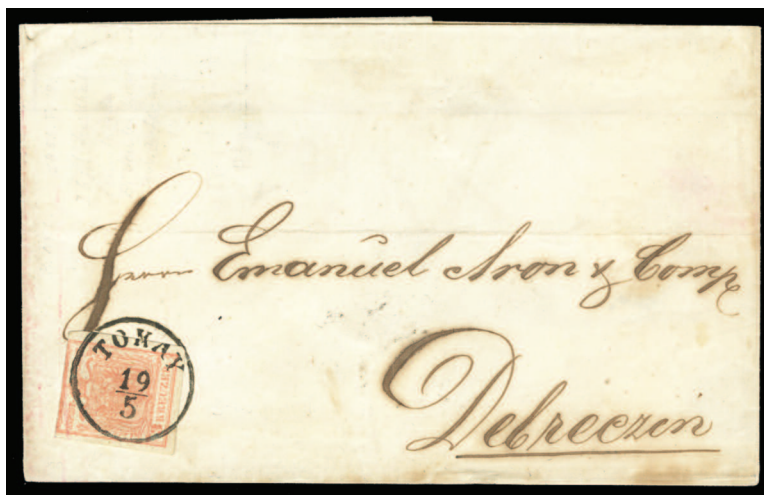 Herrn Emanuel Aron & Comp
Debreczin
TOKAY
19
5
KREUZER